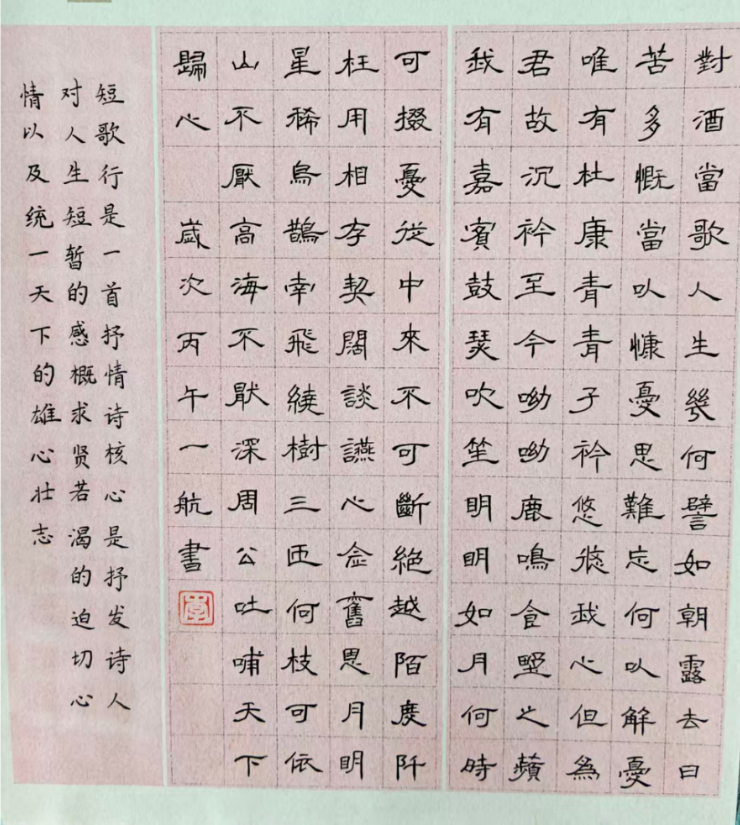 對酒當歌人生幾何譬如朝露去日
苦多慨當以慷憂思難忘何以解憂
唯有杜康青青子衿悠悠我心但為
君故沉衿至今呦呦鹿鳴食野之蘋
我有嘉賓鼓瑟吹笙明明如月何時
可掇憂從中來不可斷絕越陌度阡
枉用相存契闊談讌心念舊恩月明
星稀烏鵲南飛繞樹三匝何枝可依
山不厭高海不厭深周公吐哺天下
歸心 歲次丙午一航書
短歌行是一首抒情诗核心是抒发诗人
对人生短暂的感概求贤若渴的迫切心
情以及统一天下的雄心壮志